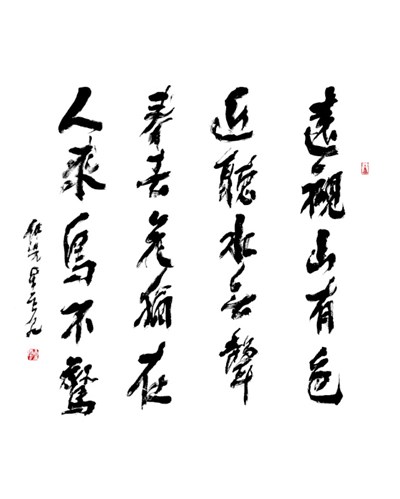 遠觀山有色
近聽水无聲
春去花猶在
人來鳥不驚